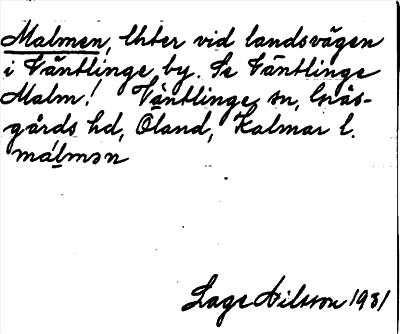 Malmen, åkter vid landsvägen
i Väntlinge by. Se Väntlinge
Malm! Väntlinge sn, Gräs-
gårds hd, Öland, Kalmar l.
málmən
Lage Nilsson 1981